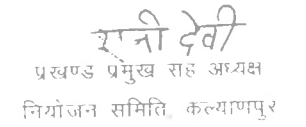 रानी देवी
प्रखण्ड प्रमुख सह अध्यक्ष
नियोजन समिति कल्याणपुर